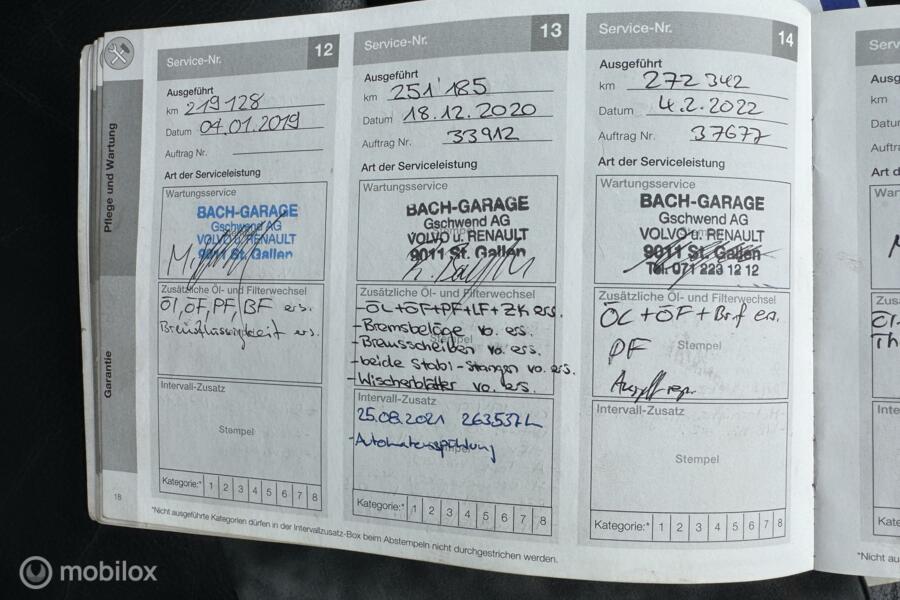 Pflege und Wartung
Garantie
18
Service-Nr. 12
Ausgeführt
km 219128
Datum 07.01.2019
Auftrag Nr.
Art der Serviceleistung
Wartungsservice
BACH-GARAGE
Gschwend AG
VOLVO u. RENAULT
9011 St. Gallen
Zusätzliche Öl- und Filterwechsel
Öl, ÖF, PF, BF ers.
Bremsflüssigkeit ers.
Intervall-Zusatz
Stempel
Kategorie:* 1 2 3 4 5 6 7 8
Service-Nr. 13
Ausgeführt
km 251'185
Datum 18.12.2020
Auftrag Nr. 33912
Art der Serviceleistung
Wartungsservice
BACH-GARAGE
Gschwend AG
VOLVO u. RENAULT
9011 St. Gallen
Zusätzliche Öl- und Filterwechsel
-ÖL+ÖF+PF+LF+ZK ers.
-Bremsbeläge vo. ers.
-Bremsscheiben vo. ers.
-beide Stabi-Stangen vo. ers.
-Wischerblätter vo. ers.
Intervall-Zusatz
25.08.2021 263537
-Automatenspühlung
Kategorie:* 1 2 3 4 5 6 7 8
Service-Nr. 14
Ausgeführt
km 272 342
Datum 4.2.2022
Auftrag Nr. 37677
Art der Serviceleistung
Wartungsservice
BACH-GARAGE
Gschwend AG
VOLVO u. RENAULT
9011 St. Gallen
Tel. 071 223 12 12
Zusätzliche Öl- und Filterwechsel
ÖL + ÖF + Brf ers.
PF Stempel
Intervall-Zusatz
Stempel
Kategorie:* 1 2 3 4 5 6 7 8
*Nicht ausgeführte Kategorien dürfen in der Intervallzusatz-Box beim Abstempeln nicht durchgestrichen werden.
Serv
Ausg
km
Datu
Auftr
Art d
War
Zus
Inte
Kate
*Nicht au
mobilox